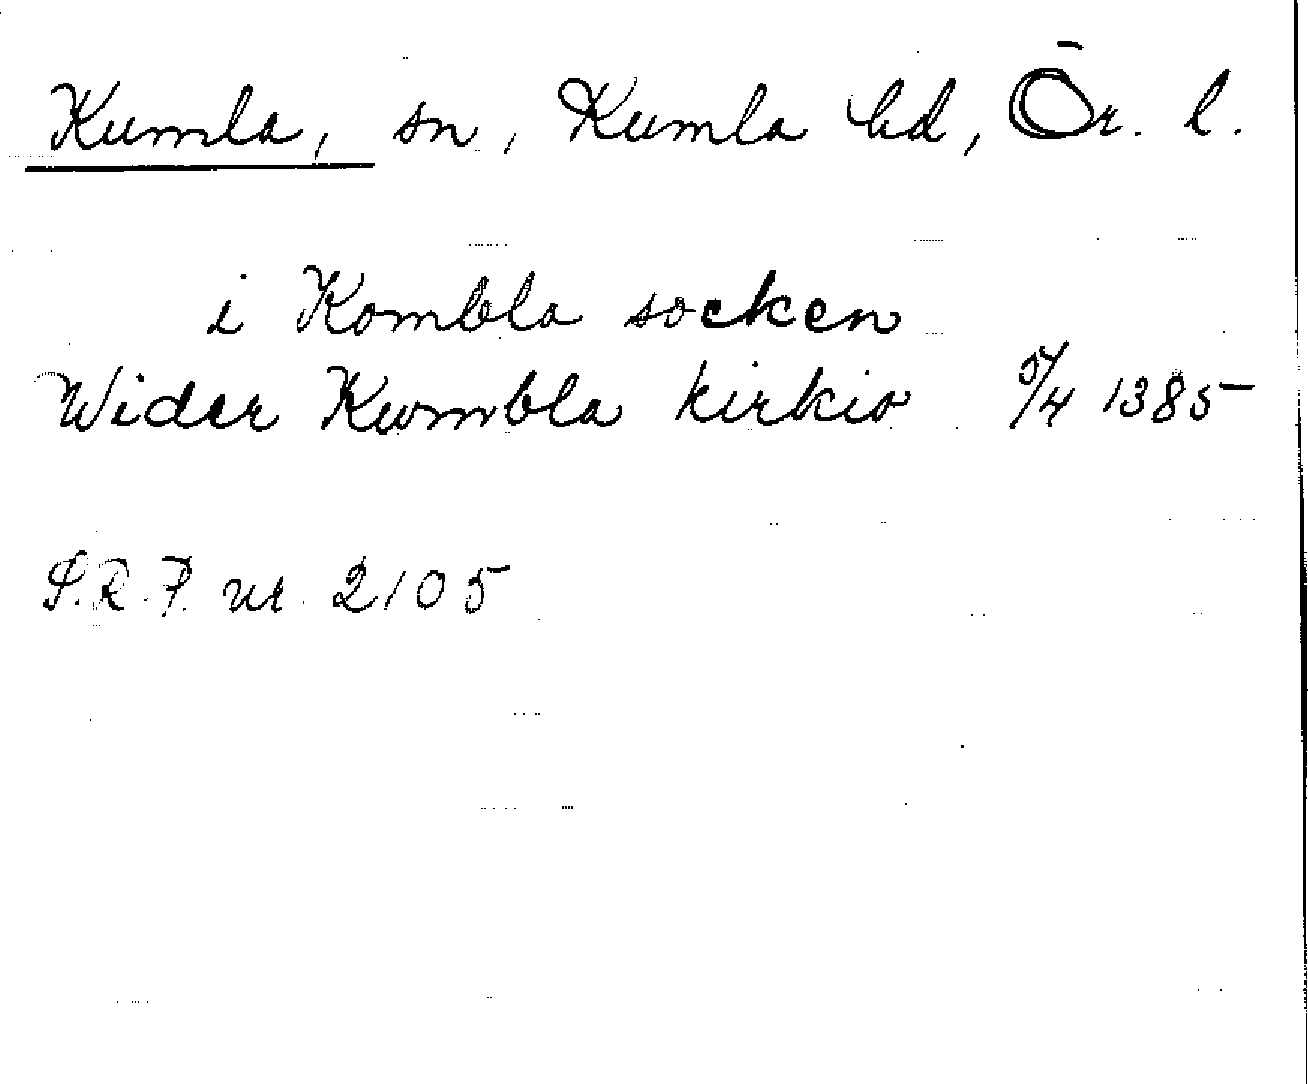 Kumla, sn, Kumla hd, Ör. l.
i Kombla socken
Wider Kumbla kirkio 5/4 1385
S.R.P. nr. 2105